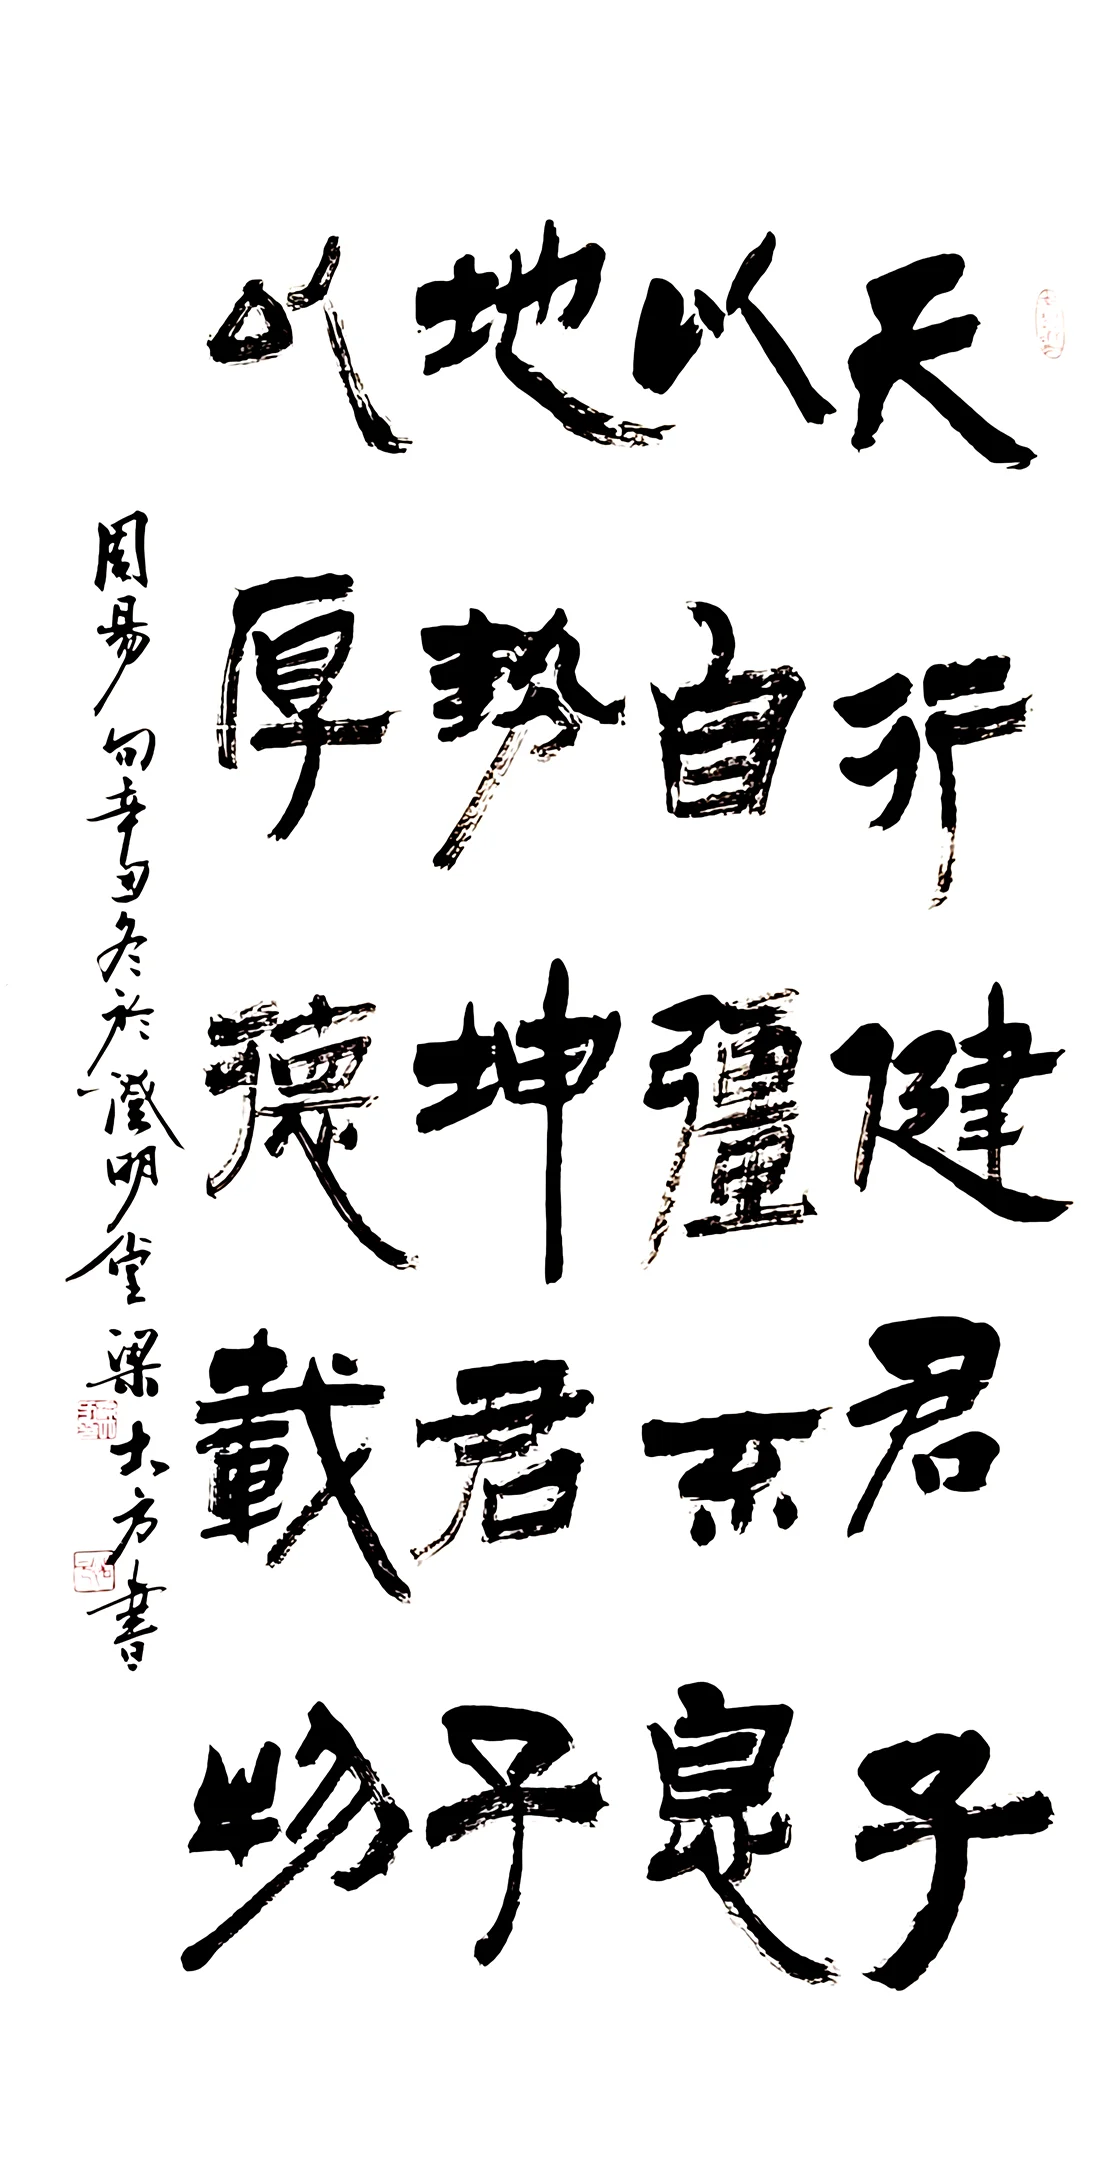 天行健君子
以自彊不息
地勢坤君子
以厚德載物
周易句辛丑冬於澄明堂梁大方書